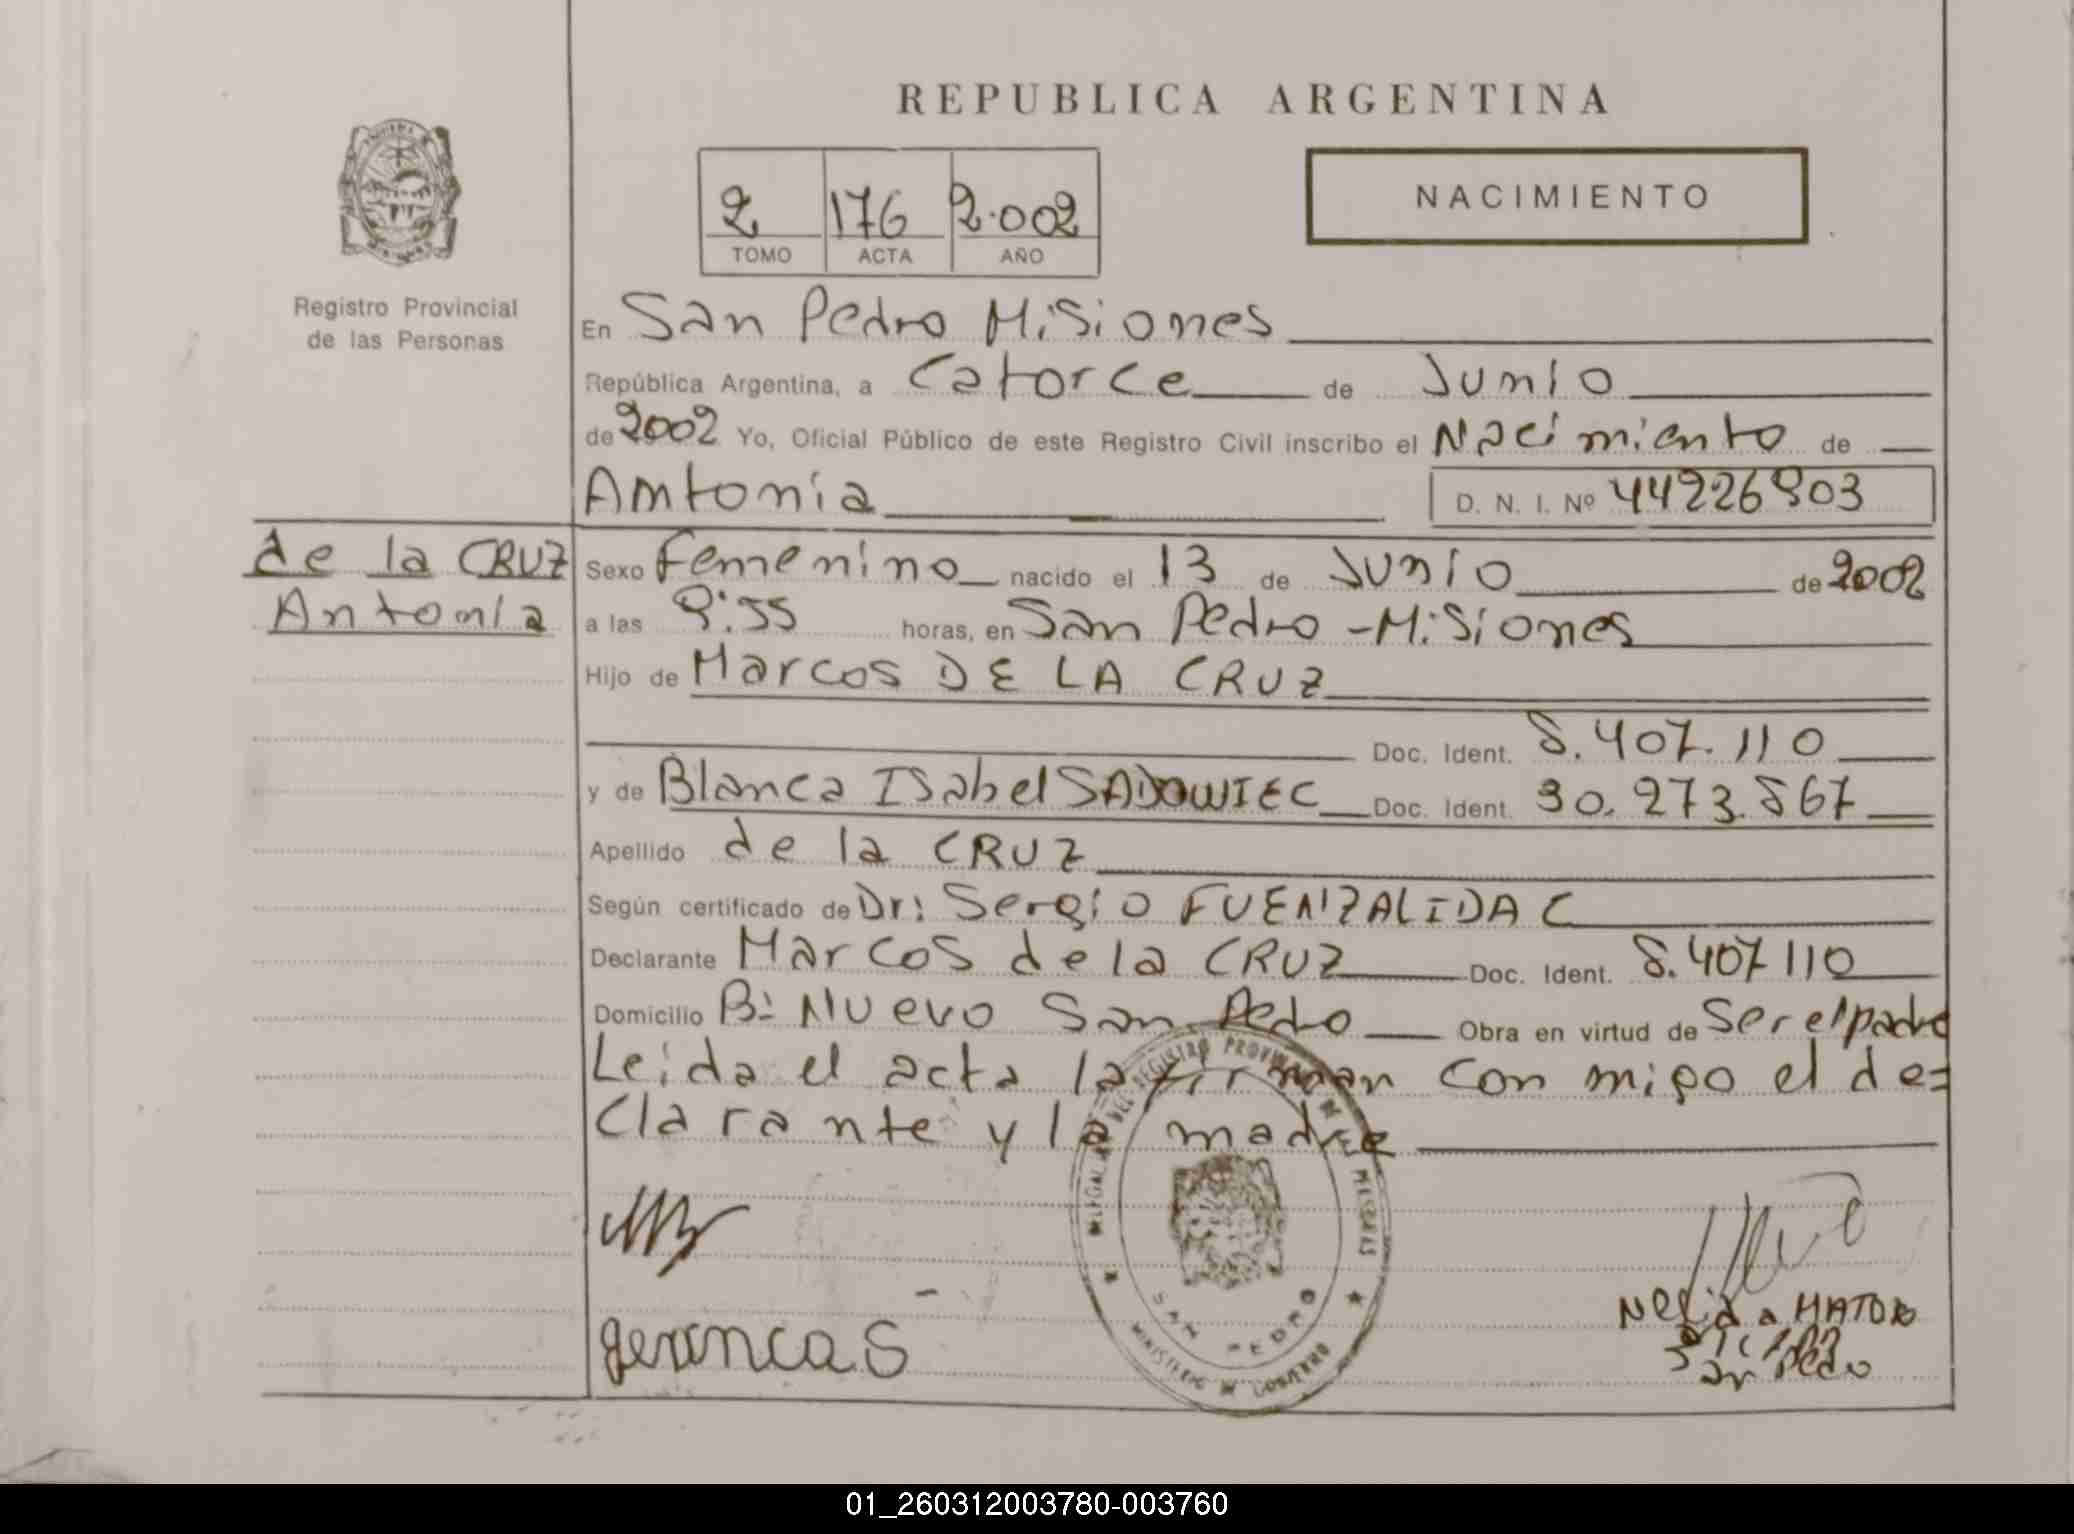 REPUBLICA ARGENTINA
NACIMIENTO
2 176 2.002
TOMO ACTA AÑO
Registro Provincial
de las Personas
En San Pedro Misiones
República Argentina, a Catorce de Junio
de 2002 Yo, Oficial Público de este Registro Civil inscribo el Nacimiento de
Antonia D. N. I. Nº 44226903
de la CRUZ
Antonia
Sexo Femenino nacido el 13 de Junio de 2002
a las 9:55 horas, en San Pedro - Misiones
Hijo de Marcos DE LA CRUZ
Doc. Ident. 8.407.110
y de Blanca Isabel SADOWIEC Doc. Ident. 30.273.867
Apellido de la CRUZ
Según certificado de Dr: Sergio FUENZALIDA C
Declarante Marcos de la CRUZ Doc. Ident. 8.407110
Domicilio Bº Nuevo San Pedro Obra en virtud de Ser el padre
Leida el acta la firman con migo el de=
clarante y la madre
DEL REGISTRO PROVINCIAL DE
SAN PEDRO
MINISTERIO DE GOBIERNO
San Pedro
01_260312003780-003760